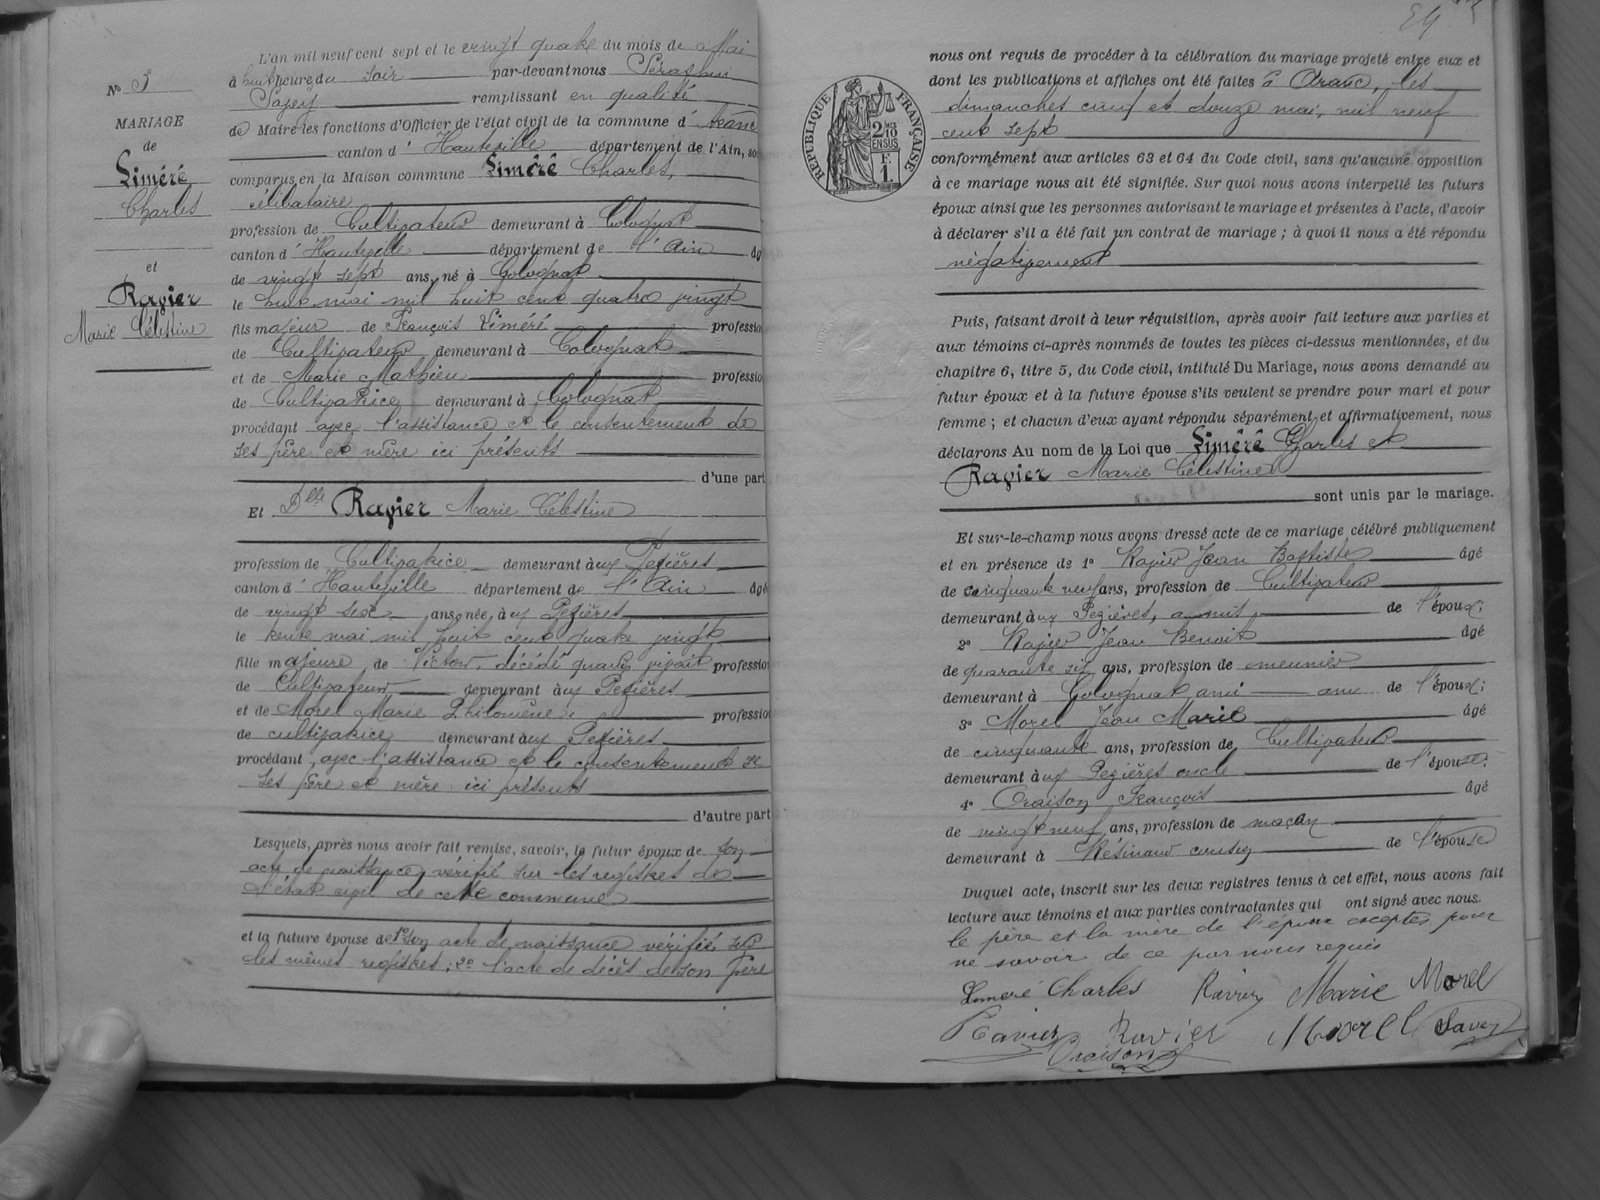 L'an mil neuf cent sept et le vingt quatre du mois de Mai
à huit heure du soir par-devant nous Séraphin
Savey remplissant en qualité
de Maire les fonctions d'Officier de l'état civil de la commune d' Aranc
canton d' Hauteville département de l'Ain, so
comparus en la Maison commune Liméré Charles,
célibataire
profession de Cultivateur demeurant à Colognat
canton d' Hauteville département de l'Ain âg
de vingt sept ans, né à Colognat
le huit mai mil huit cent quatre vingt
fils majeur de François Liméré professio
de Cultivateur demeurant à Colognat
et de Marie Mathieu professio
de Cultivatrice demeurant à Colognat
procédant avec l'assistance et le consentement de
ses père et mère ici présents
d'une part
Et Dlle Ravier Marie Célestine
profession de Cultivatrice demeurant aux Pezières
canton d' Hauteville département de l'Ain âgé
de vingt sept ans, née, aux Pezières
le trente mai mil huit cent quatre vingt
fille majeure de Victor, décédé quand vivait professio
de Cultivateur demeurant aux Pezières
et de Morel Marie Philomène professio
de cultivatrice demeurant aux Pezières
procédant avec l'assistance et le consentement de
ses père et mère ici présents
d'autre part
Lesquels, après nous avoir fait remise, savoir, le futur époux de son
acte de naissance, vérifié sur les registres de
l'état civil de cette commune
et la future épouse de 1° son acte de naissance vérifié sur
les mêmes registres; 2° l'acte de décès de son père
N° 3
MARIAGE
de
Liméré
Charles
et
Ravier
Marie Célestine
nous ont requis de procéder à la célébration du mariage projeté entre eux et
dont les publications et affiches ont été faites à Aranc, les
dimanches cinq et douze mai, mil neuf
cent sept
conformément aux articles 63 et 64 du Code civil, sans qu'aucune opposition
à ce mariage nous ait été signifiée. Sur quoi nous avons interpellé les futurs
époux ainsi que les personnes autorisant le mariage et présentes à l'acte, d'avoir
à déclarer s'il a été fait un contrat de mariage ; à quoi il nous a été répondu
négativement
Puis, faisant droit à leur réquisition, après avoir fait lecture aux parties et
aux témoins ci-après nommés de toutes les pièces ci-dessus mentionnées, et du
chapitre 6, titre 5, du Code civil, intitulé Du Mariage, nous avons demandé au
futur époux et à la future épouse s'ils veulent se prendre pour mari et pour
femme ; et chacun d'eux ayant répondu séparément et affirmativement, nous
déclarons Au nom de la Loi que Liméré Charles et
Ravier Marie Célestine
sont unis par le mariage.
Et sur-le-champ nous avons dressé acte de ce mariage célébré publiquement
et en présence de 1° Ravier Jean Baptiste âgé
de cinquante neuf ans, profession de Cultivateur
demeurant aux Pezières, ami de l'époux;
2° Ravier Jean Benoit âgé
de quarante six ans, profession de meunier
demeurant à Colognat ami de l'époux;
3° Morel Jean Marie âgé
de cinquante ans, profession de Cultivateur
demeurant aux Pezières oncle de l'épouse;
4° Oraison François âgé
de vingt neuf ans, profession de maçon
demeurant à Résinand cousin de l'épouse
Duquel acte, inscrit sur les deux registres tenus à cet effet, nous avons fait
lecture aux témoins et aux parties contractantes qui ont signé avec nous.
le père et la mère de l'époux exceptés pour
ne savoir de ce par nous requis
Limeré Charles Ravier Marie Morel
Ravier Ravier Morel Savey
Oraison
RÉPUBLIQUE FRANÇAISE
2/10
EN SUS
F.
1.